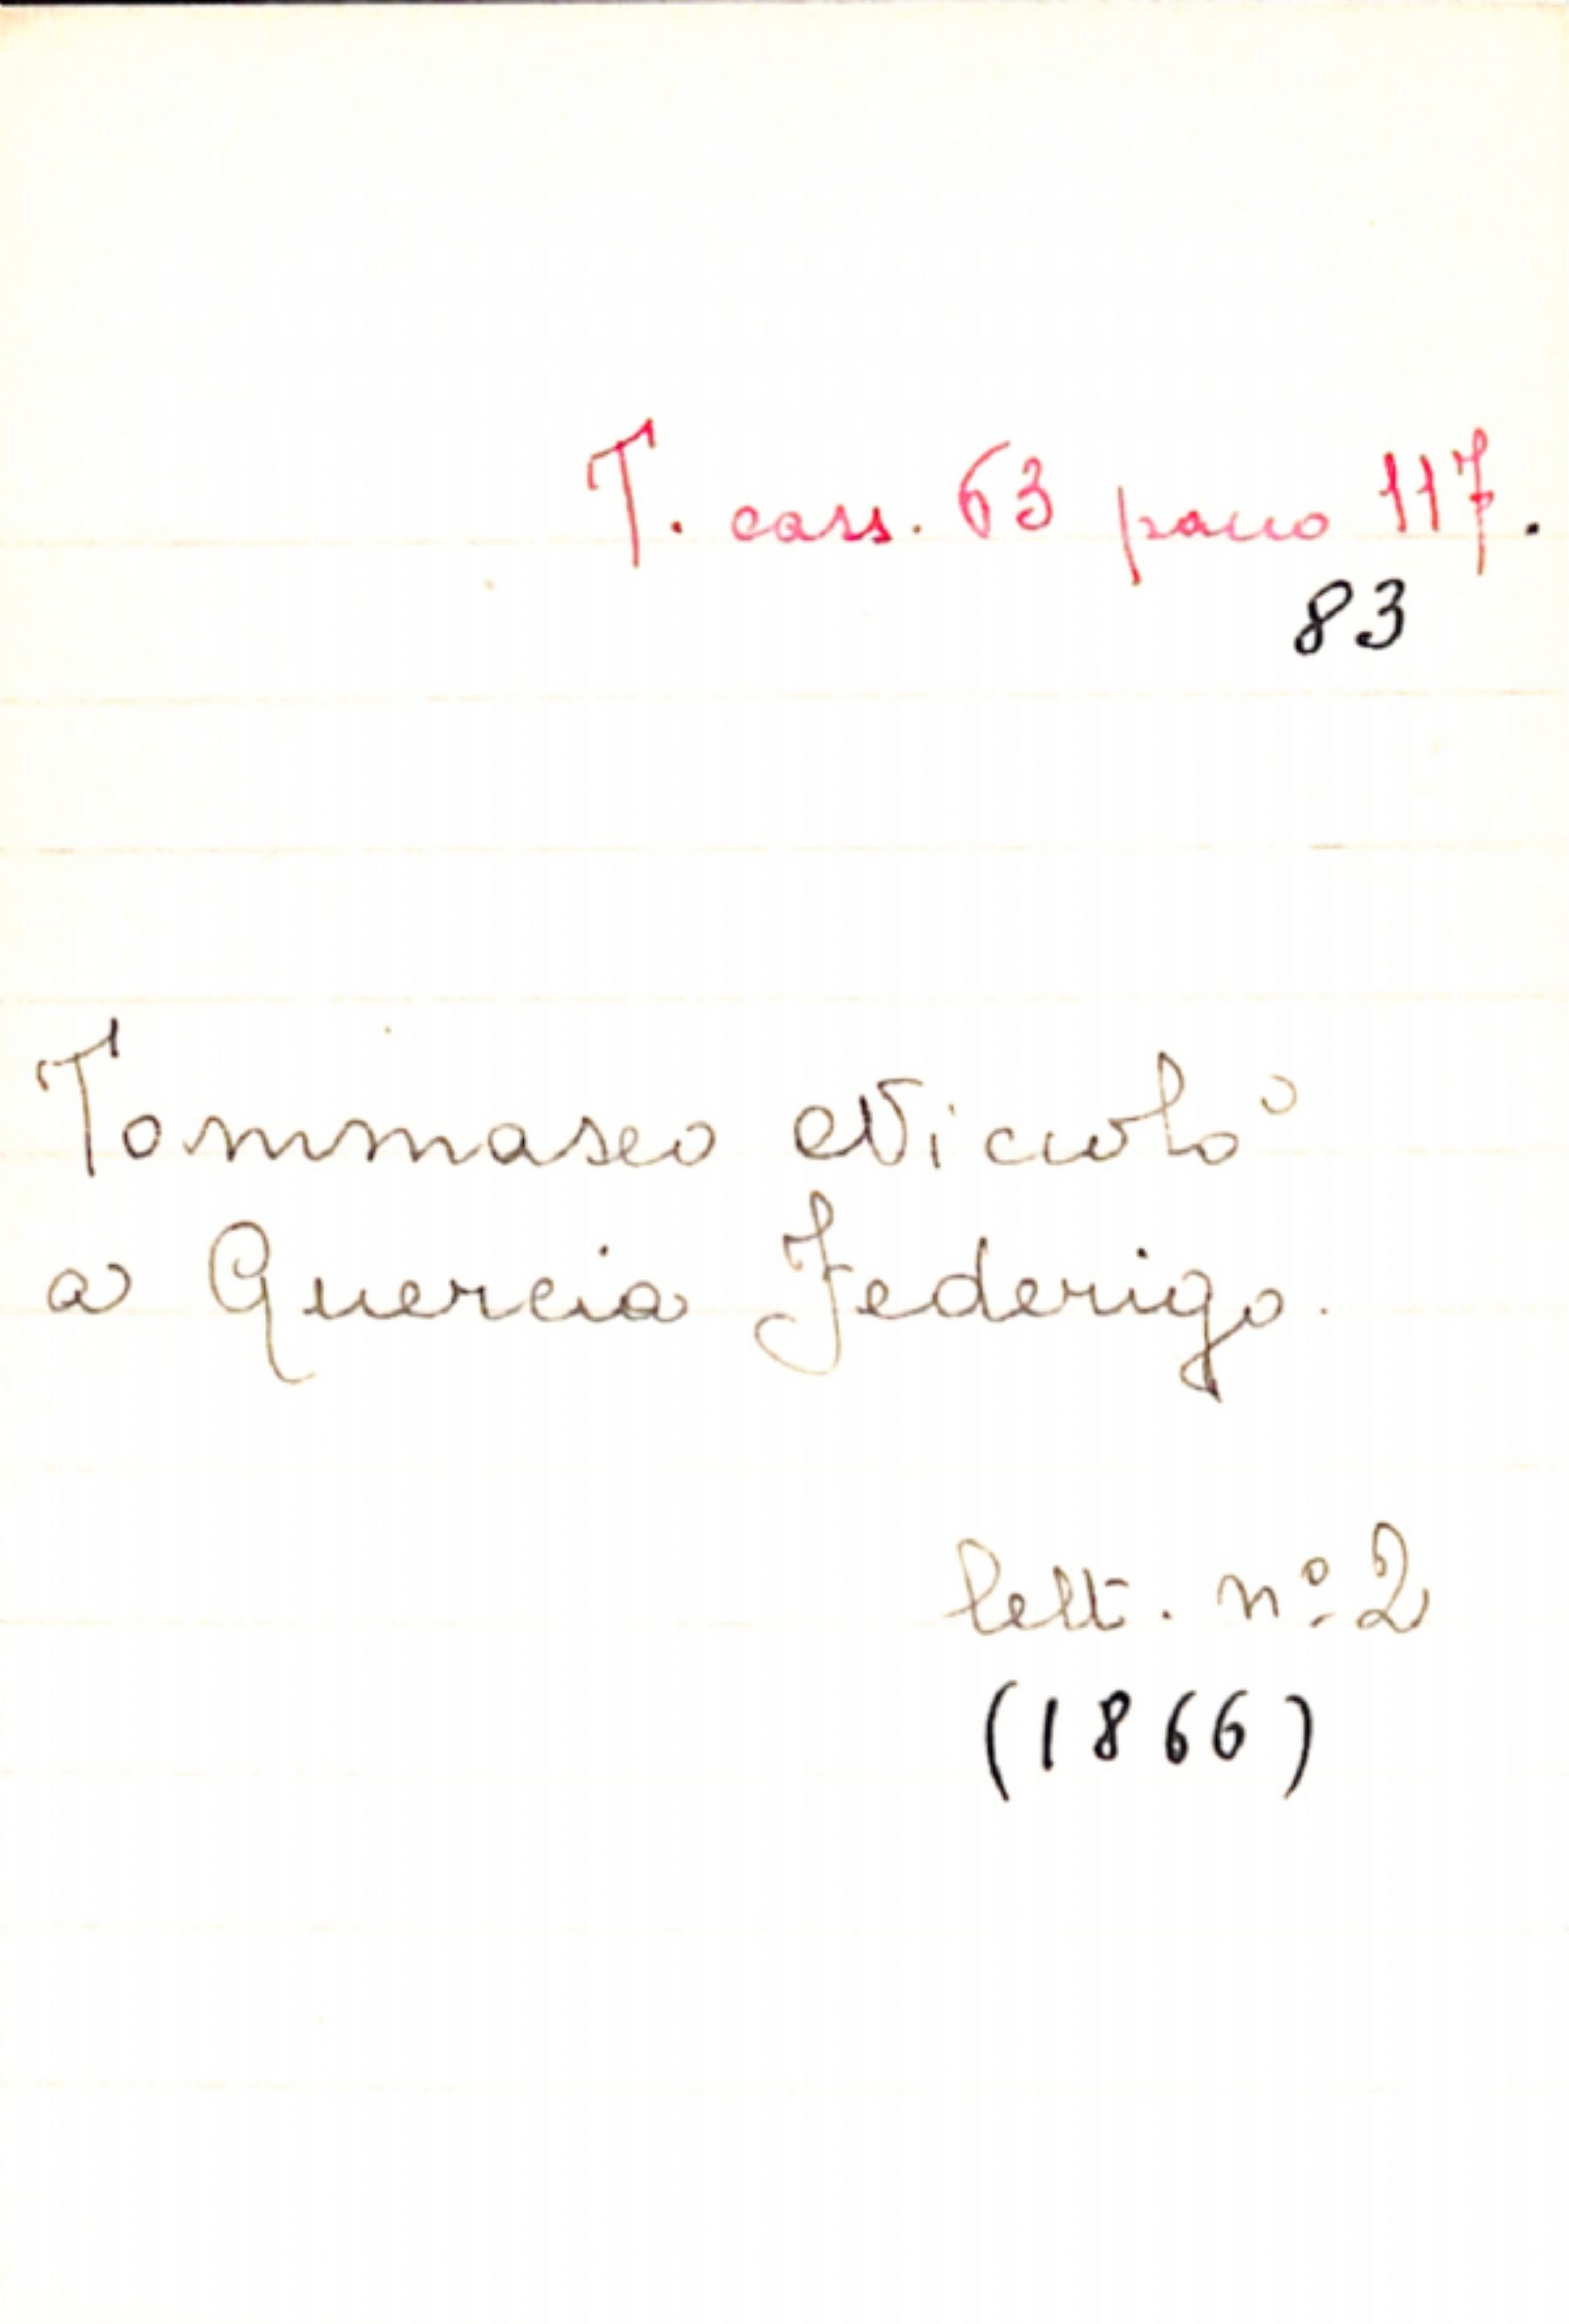 T. cass. 63 pacco 117.
83
Tommaseo Niccolò
a Quercia Federigo.
lett. nº 2
(1866)